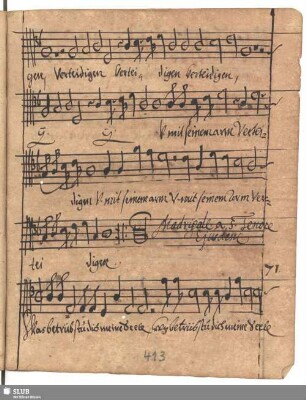 gen, Verteidigen Vertei, digen Verteidigen,
ij ij V. mit seinem arm Vertei-
digen V. mit seinem arm V. mit seinem arm Ver-
Madrigale a. 5. Tenore
tei digen.
71.
Was betrübstu dich meine Seele Was betrübstu dich meine Seele
413
SLUB